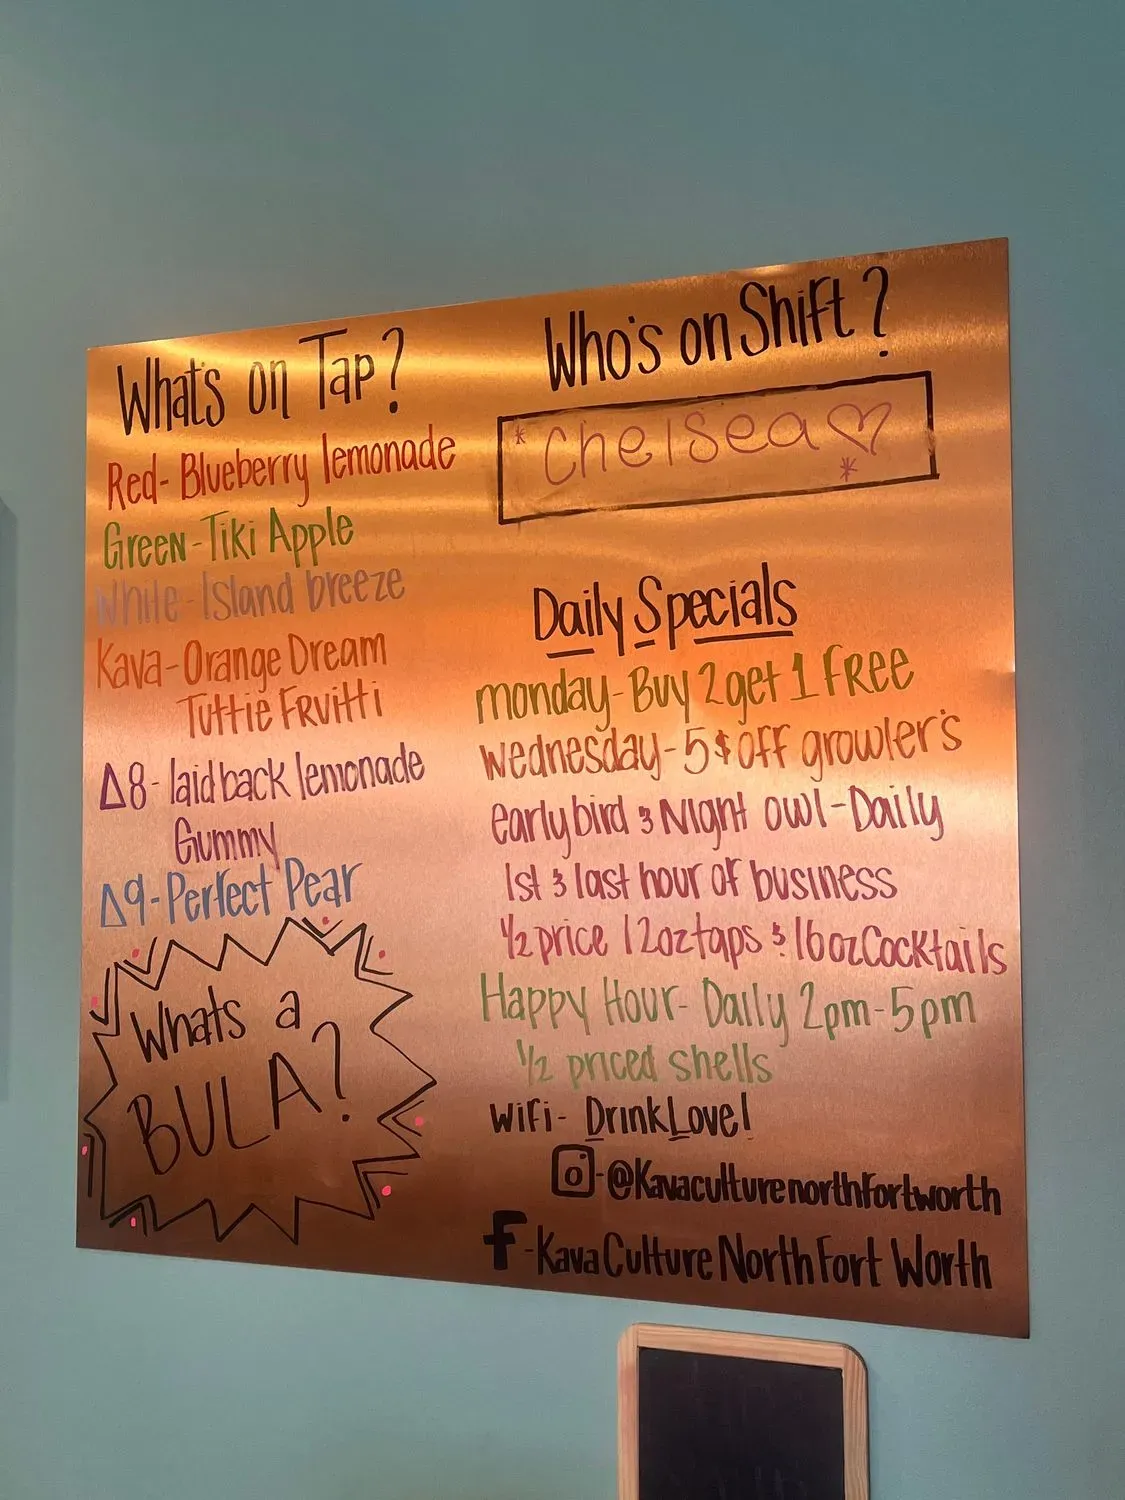 What's on Tap?
Red-Blueberry lemonade
Green-Tiki Apple
White-Island breeze
Kava-Orange Dream
Tuttie Fruitti
Δ8-laid back lemonade
Gummy
Δ9-Perfect Pear
Whats a
BULA?
Who's on Shift?
*Chelsea♡*
Daily Specials
monday-Buy 2 get 1 FREE
wednesday-5$ off growler's
early bird & Night owl-Daily
1st & last hour of business
½ price 12oz taps & 16oz Cocktails
Happy Hour-Daily 2pm-5pm
½ priced shells
wifi-DrinkLove!
-@Kavaculturenorthfortworth
f-Kava Culture North Fort Worth